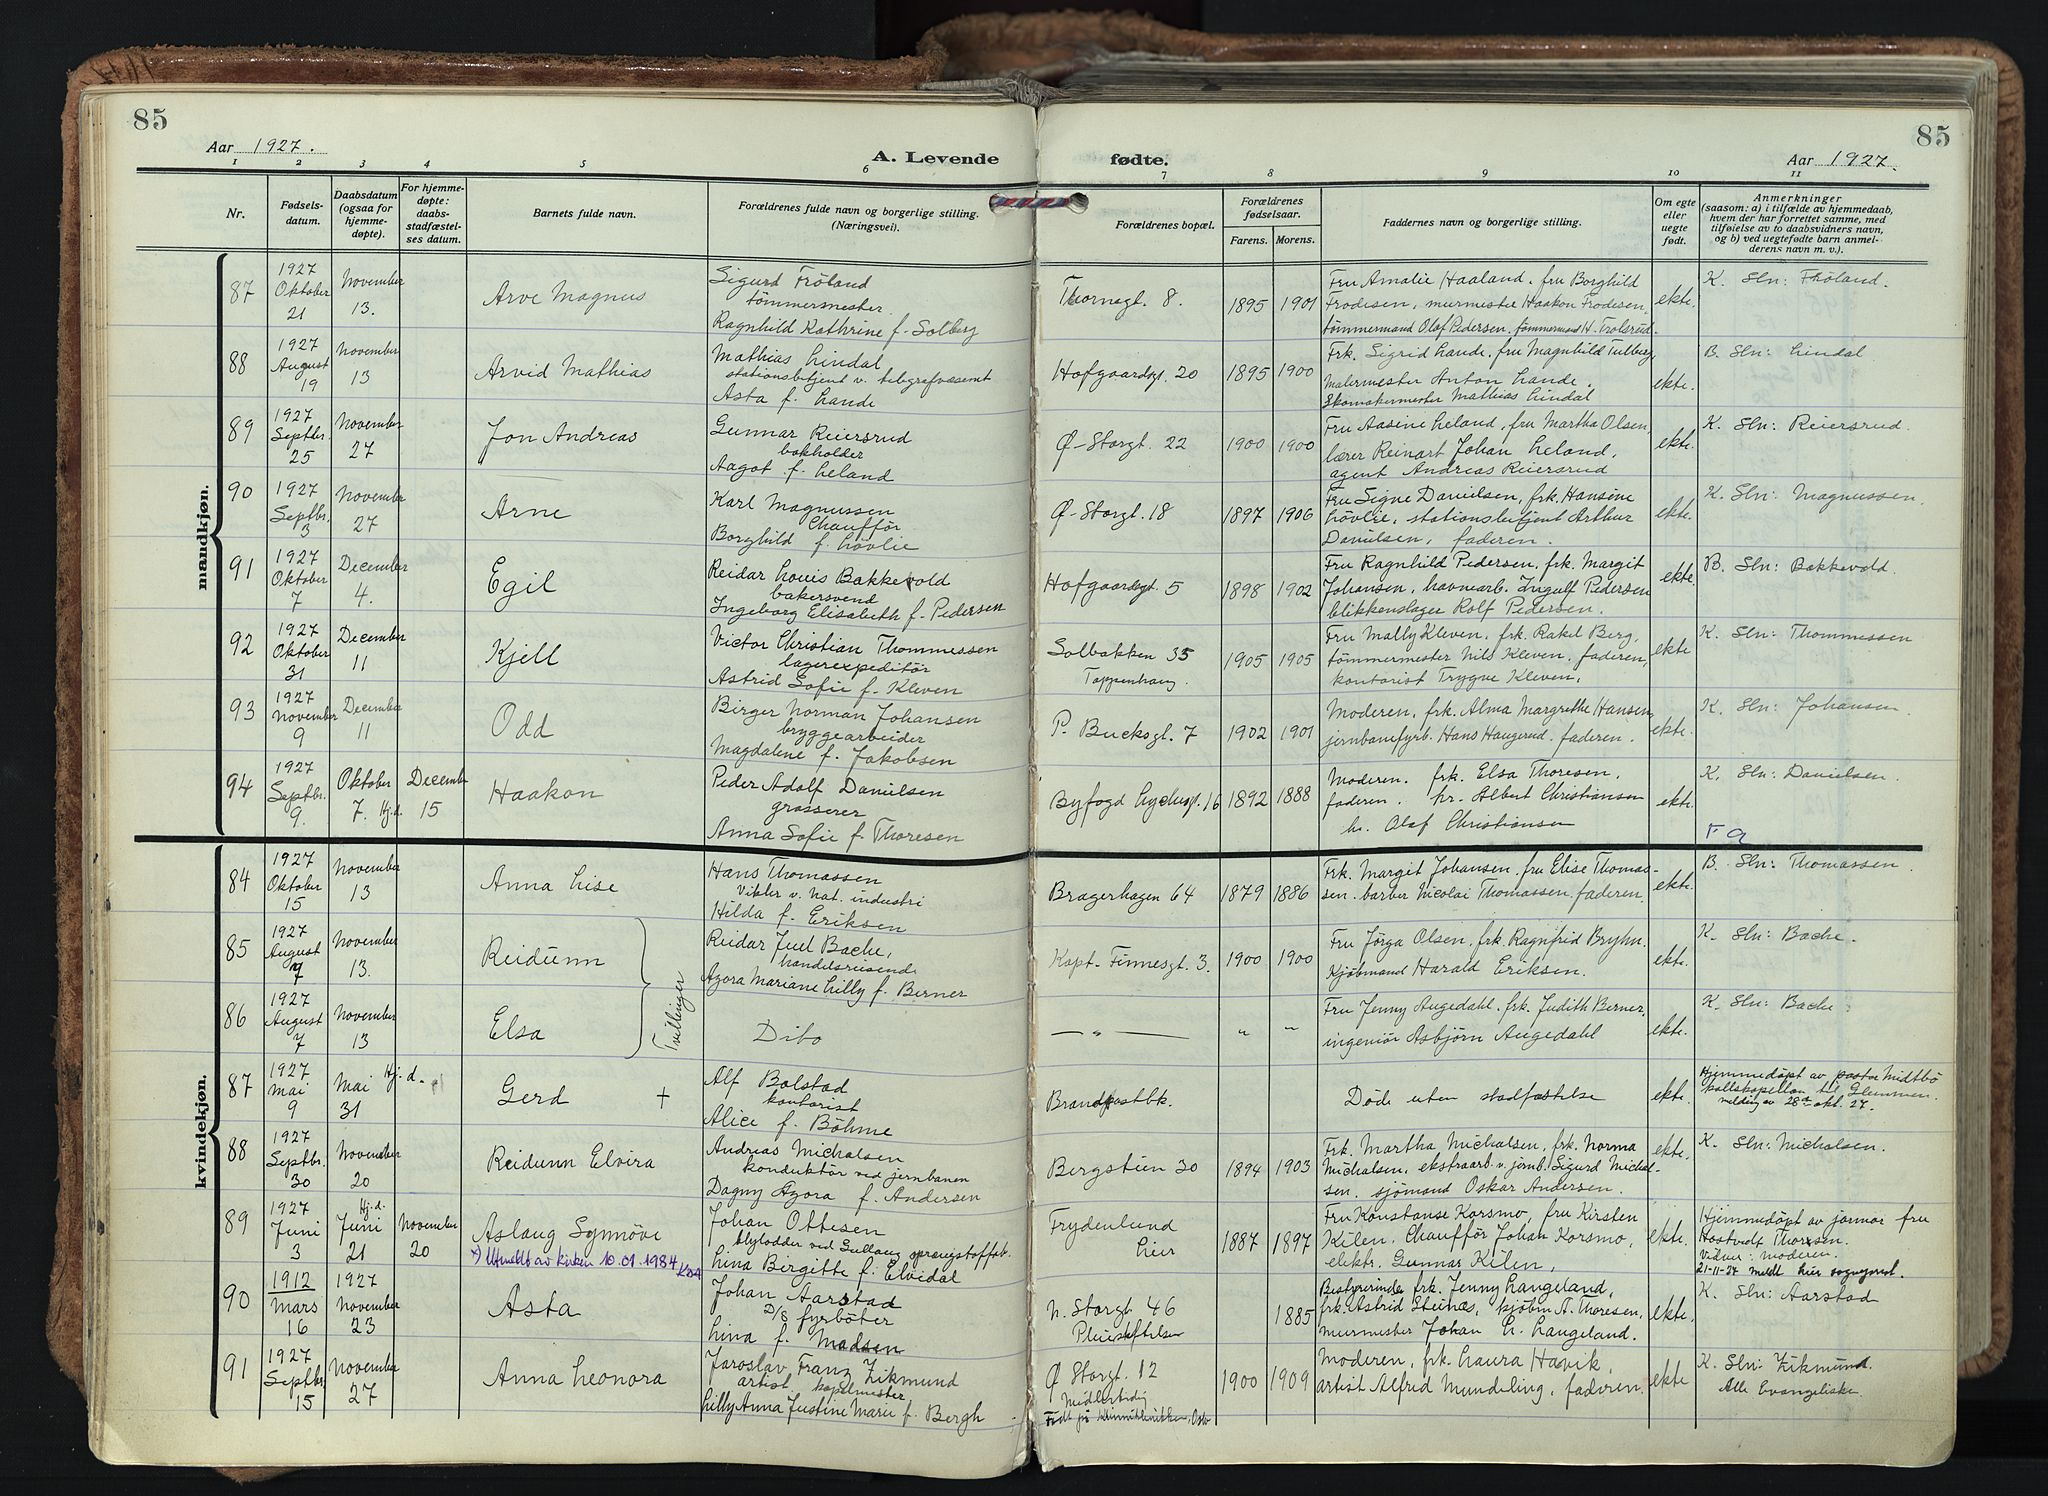 85
85
Aar 1927.
A. Levende
fødte.
Aar 1927.
1 2 3 4 5 6 7 8 9 10 11
Nr.
Fødsels-
datum.
Daabsdatum
(ogsaa for
hjemme-
døpte).
For hjemme-
døpte:
daabs-
stadfæstel-
ses datum.
Barnets fulde navn.
Forældrenes fulde navn og borgerlige stilling.
(Næringsvei).
Forældrenes bopæl.
Forældrenes
fødselsaar.
Farens. Morens.
Faddernes navn og borgerlige stilling.
Om egte
eller
uegte
født.
Anmerkninger
(saasom: a) i tilfælde av hjemmedaab,
hvem der har forrettet samme, med
tilføielse av to daabsvidners navn,
og b) ved uegtefødte barn anmel-
derens navn m. v.).
mandkjøn.
87
1927
Oktober
21
November
13.
Arve Magnus
Sigurd Fröland
tømmermester.
Ragnhild Kathrine f. Solberg
Thornegt. 8.
1895 1901
Fru Amalie Haaland, fru Borghild
Frodesen, murmester Haakon Frodesen,
tømmermand Olaf Pedersen, tømmermand H. Trolsrud.
ekte.
K. Sln: Fröland.
88
1927
August
19
November
13
Arvid Mathias
Mathias Lindal
stationsbetjent v. telegrafvæsenet
Asta f. Lande
Hofgaardsgt. 20
1895 1900
Frk. Sigrid Lande, fru Magnhild Tulberg
Malermester Anton Lande.
Skomakermester Mathias Lindal
ekte.
B. Sln: Lindal
89
1927
Septbr.
25
November
27
Jon Andreas
Gunnar Reiersrud
bokholder
Aagot f. Leland
Ø-Storgt. 22
1900 1900
Fru Aasine Leland, fru Martha Olsen,
lærer Reinart Johan Leland,
agent Andreas Reiersrud
ekte.
K. Sln: Reiersrud.
90
1927
Septbr.
3
November
27
Arne
Karl Magnussen
Chauffør
Borghild f. Lövlie
Ø-Storgt. 18
1897 1906
Fru Signe Danielsen, frk. Hansine
Lövlie, stationsbetjent Arthur
Danielsen, faderen.
ekte.
K. Sln: Magnussen.
91
1927
Oktober
7
December
4.
Egil
Reidar Louis Bakkevold
bakersvend
Ingeborg Elisabeth f. Pedersen
Hofgaardsgt. 5
1898 1902
Fru Ragnhild Pedersen, frk. Margit
Johansen, havnearb. Ingulf Pedersen
blikkenslager Rolf Pedersen.
ekte
B. Sln: Bakkevold.
92
1927
Oktober
31
December
11
Kjell
Victor Christian Thommessen
lagerexpeditör
Astrid Sofie f. Kleven
Solbakken 35
Toppenhaug.
1905 1905
Fru Mally Kleven, frk. Rakel Berg,
tømmermester Nils Kleven, faderen,
kontorist Trygve Kleven.
ekte
K. Sln: Thommessen
93
1927
November
9
December
11
Odd
Birger Norman Johansen
bryggearbeider
Magdalene f. Jakobsen
P. Bucksgt. 7
1902 1901
Moderen, frk. Alma Margrethe Hansen
jernbanefyrb. Hans Haugerud. faderen.
ekte.
K. Sln: Johansen.
94
1927
Septbr.
9.
Oktober
7. Hj.d.
December
15
Haakon
Peder Adolf Danielsen
grosserer
Anna Sofie f. Thoresen
Byfogd Lychesgt. 16
1892 1888
Moderen. frk. Elsa Thoresen.
faderen. hr. Albert Christiansen
hr. Olaf Christiansen
ekte.
K. Sln: Danielsen.
kvindekjøn.
84
1927
Oktober
15
November
13
Anna Lise
Hans Thomassen
Vikler v. Nat. industri
Hilda f. Eriksen
Bragerhagen 64
1879 1886
Frk. Margit Johansen, fru Elise Thomas-
sen. barber Nicolai Thomassen. faderen.
ekte.
B. Sln: Thomassen
85
1927
August
7
November
13.
Reidunn
Tvillinger
Reidar Juel Bache,
handelsreisende
Agora Mariane Lilly f. Berner
Kapt. Finnesgt. 3.
1900 1900
Fru Jørga Olsen, frk. Ragnfrid Bryhn.
Kjøbmand Harald Eriksen.
ekte.
K. Sln: Bache.
86
1927
August
7
November
13
Elsa
Dito
— „ —
„ „
Fru Jenny Augedahl, frk. Judith Berner,
ingeniør Asbjørn Augedahl
ekte.
K. Sln: Bache
87
1927
Mai
9
Mai
31
Hj. d.
Gerd +
Alf Bolstad
kontorist
Alice f. Böhme
Brandpostbk.
Døde uten stadfæstelse
ekte.
Hjemmedøpt av pastor Midtbö
kallskapellan til Glemmen.
melding av 28de okt. 27.
88
1927
Septbr.
30
November
20
Reidunn Elvira
Andreas Michalsen
konduktør ved jernbanen
Dagny Agora f. Andersen
Bergstien 30
1894 1903
Frk. Martha Michalsen, frk. Norma
Michalsen, ekstraarb. v. jernb. Sigurd Michal-
sen. sjømand Oskar Andersen.
ekte.
K. Sln: Michalsen.
89
1927
Juni
3
Hj.d.
Juni
21
November
20
Aslaug Synnöve
*) Utmeldt av kirken 10.01.1984 KDA
Johan Ottesen
blylodder ved Gullaug sprængstoffab.
Lina Birgitte f. Elvidal
Frydenlund
Lier
1887 1897
Fru Konstanse Korsmo, fru Kirsten
Kilen, Chauffør Johan Korsmo,
elektr. Gunnar Kilen,
ekte.
Hjemmedøpt av jormor fru
Hostvedt Thoresen.
Vidner: moderen.
21-11-27 meldt hier sogneprest.
90
1912
Mars
16
1927
November
23
Asta
Johan Aarstad
D/S fyrböter
Lina f. Madsen
N. Storgt. 46
Pleiestiftelsen
1885
Bestyrerinde frk. Jenny Langeland,
frk. Astrid Steinæs, kjøbm A. Thoresen,
murmester Johan L. Langeland.
ekte
K. Sln: Aarstad
91
1927
Septbr.
15
November
27
Anna Leonora
Jaroslav Franz Zikmund
artist kapelmester
Lilly Anna Justine Marie f. Bergh
Ø Storgt. 12
Midlertidig
Født på kvinneklinikken, Oslo
1900 1909
Moderen, frk. Laura Havik,
artist Alfred Mundeling, faderen.
ekte
K. Sln: Zikmund.
Alle Evangeliske